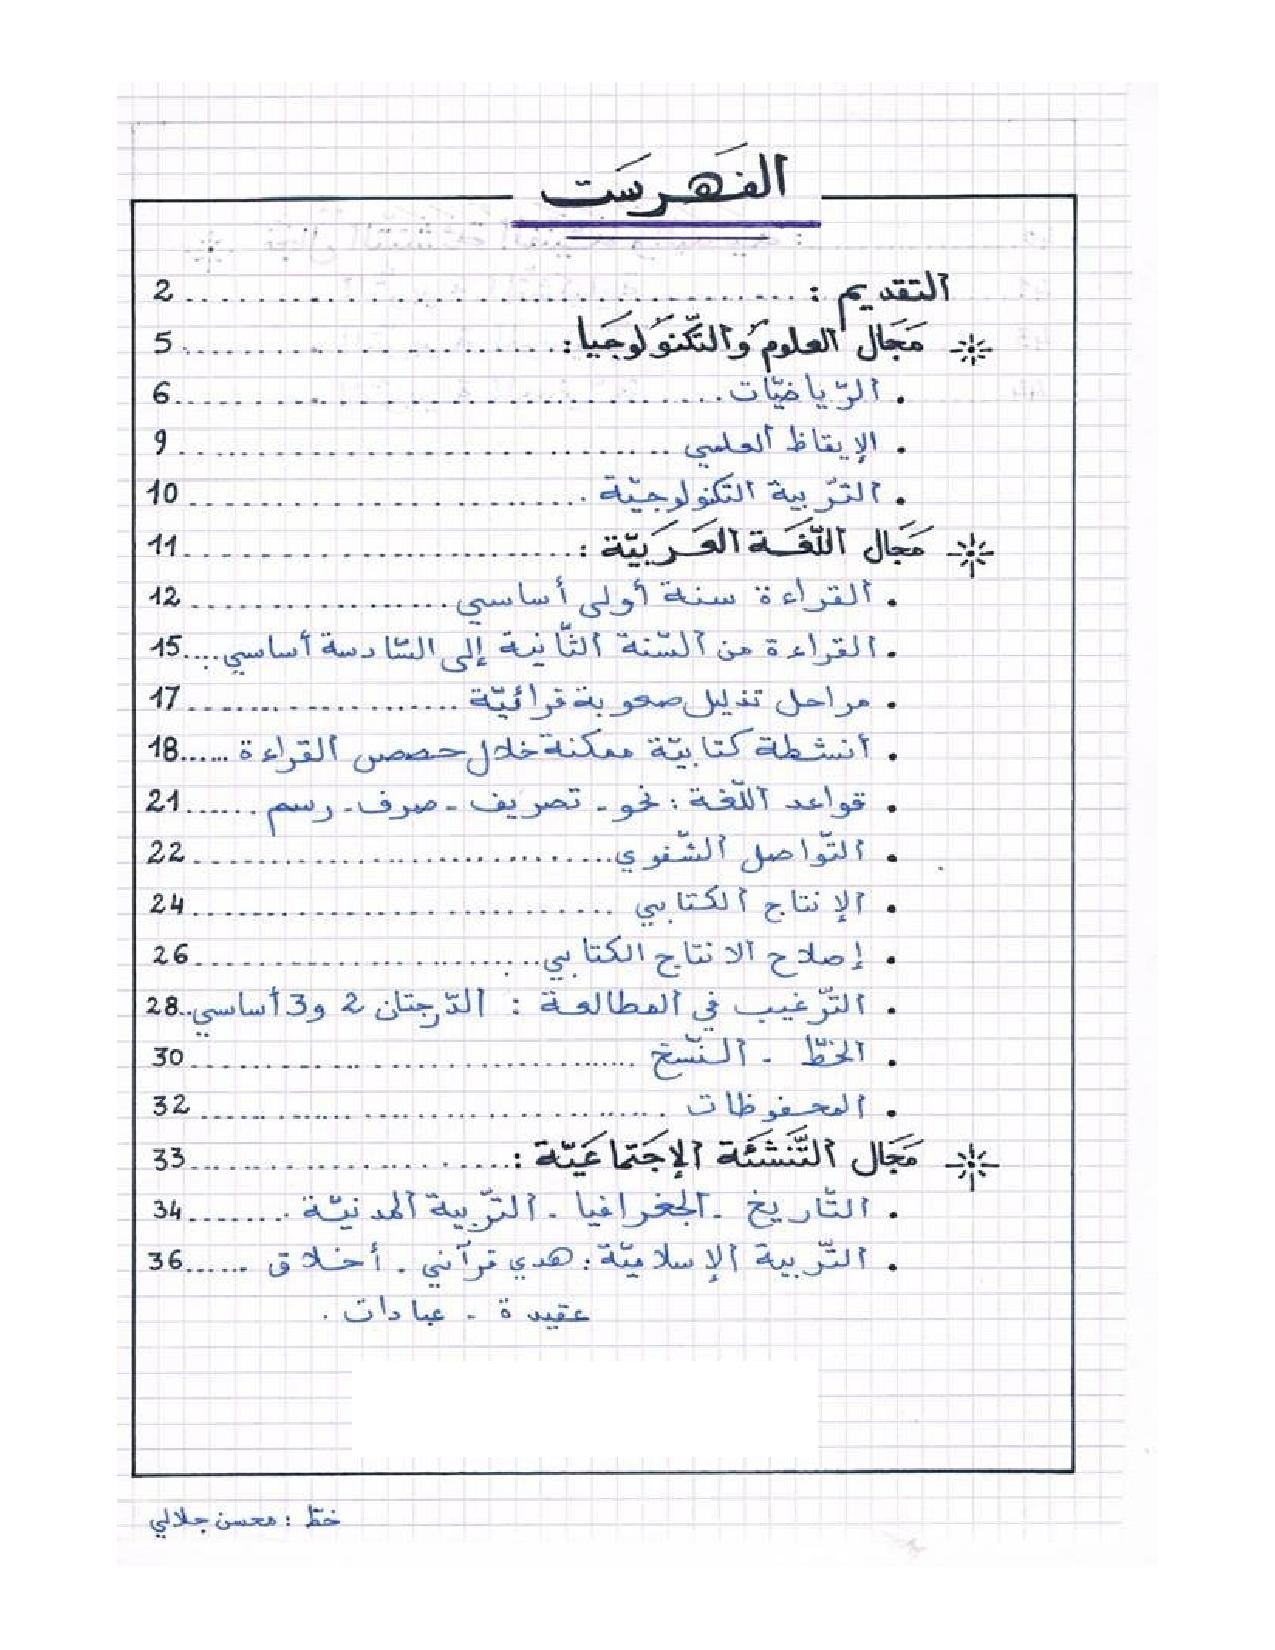 الفَهرسَت
التقديم : ........ 2
مَجَال العلوم وَالتّكنَولوجيَا: ........ 5
. الرّياضيّات ........ 6
. الإيقاظ العلمي ........ 9
. التّربية التكنولوجيّة ........ 10
مَجَال اللّغَة العَرَبيّة : ........ 11
. القراءة سنة أولى أساسي ........ 12
. القراءة من السّنة الثّانية إلى السّادسة أساسي .... 15
. مراحل تذليل صعوبة قرائيّة ........ 17
. أنشطة كتابيّة ممكنة خلال حصص القراءة ...... 18
. قواعد اللّغة : نحو - تصريف - صرف - رسم ...... 21
. التّواصل الشّفوي ........ 22
. الإنتاج الكتابي ........ 24
. إصلاح الانتاج الكتابي ........ 26
. التّرغيب في المطالعة : الدّرجتان 2 و3 أساسي .. 28
. الخطّ - النّسخ ........ 30
. المحفوظات ........ 32
مَجَال التَّنشَئَة الإجتماعَيّة : ........ 33
. التّاريخ - الجغرافيا - التّربية المدنيّة ........ 34
. التّربية الإسلاميّة : هدي قرآني - أخلاق ...... 36
عقيدة - عبادات .
خطّ : محسن جلالي